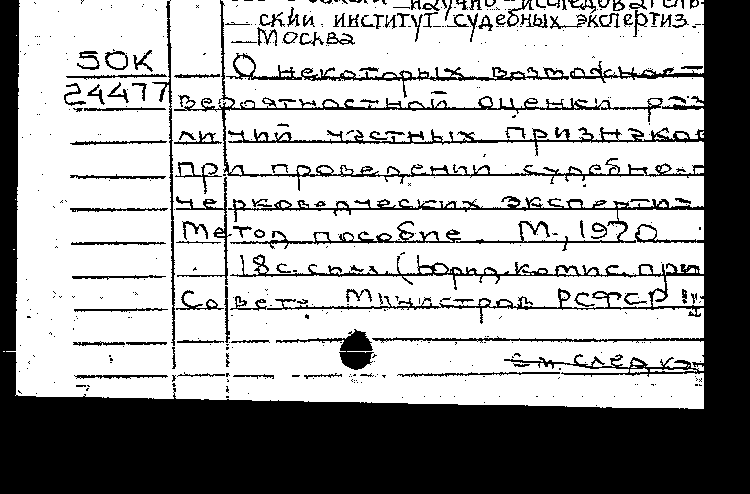 научно-исследователь-
ский институт судебных экспертиз.
Москва
50К
24477
О некоторых возможност
вероятностной оценки раз
личий частных признаков
при проведении судебно-п
черковедческих экспертиз.
Метод пособие. М., 1970
18 с. схл. (Юрид. комис. при
Совете Министров РСФСР
см. след. ка